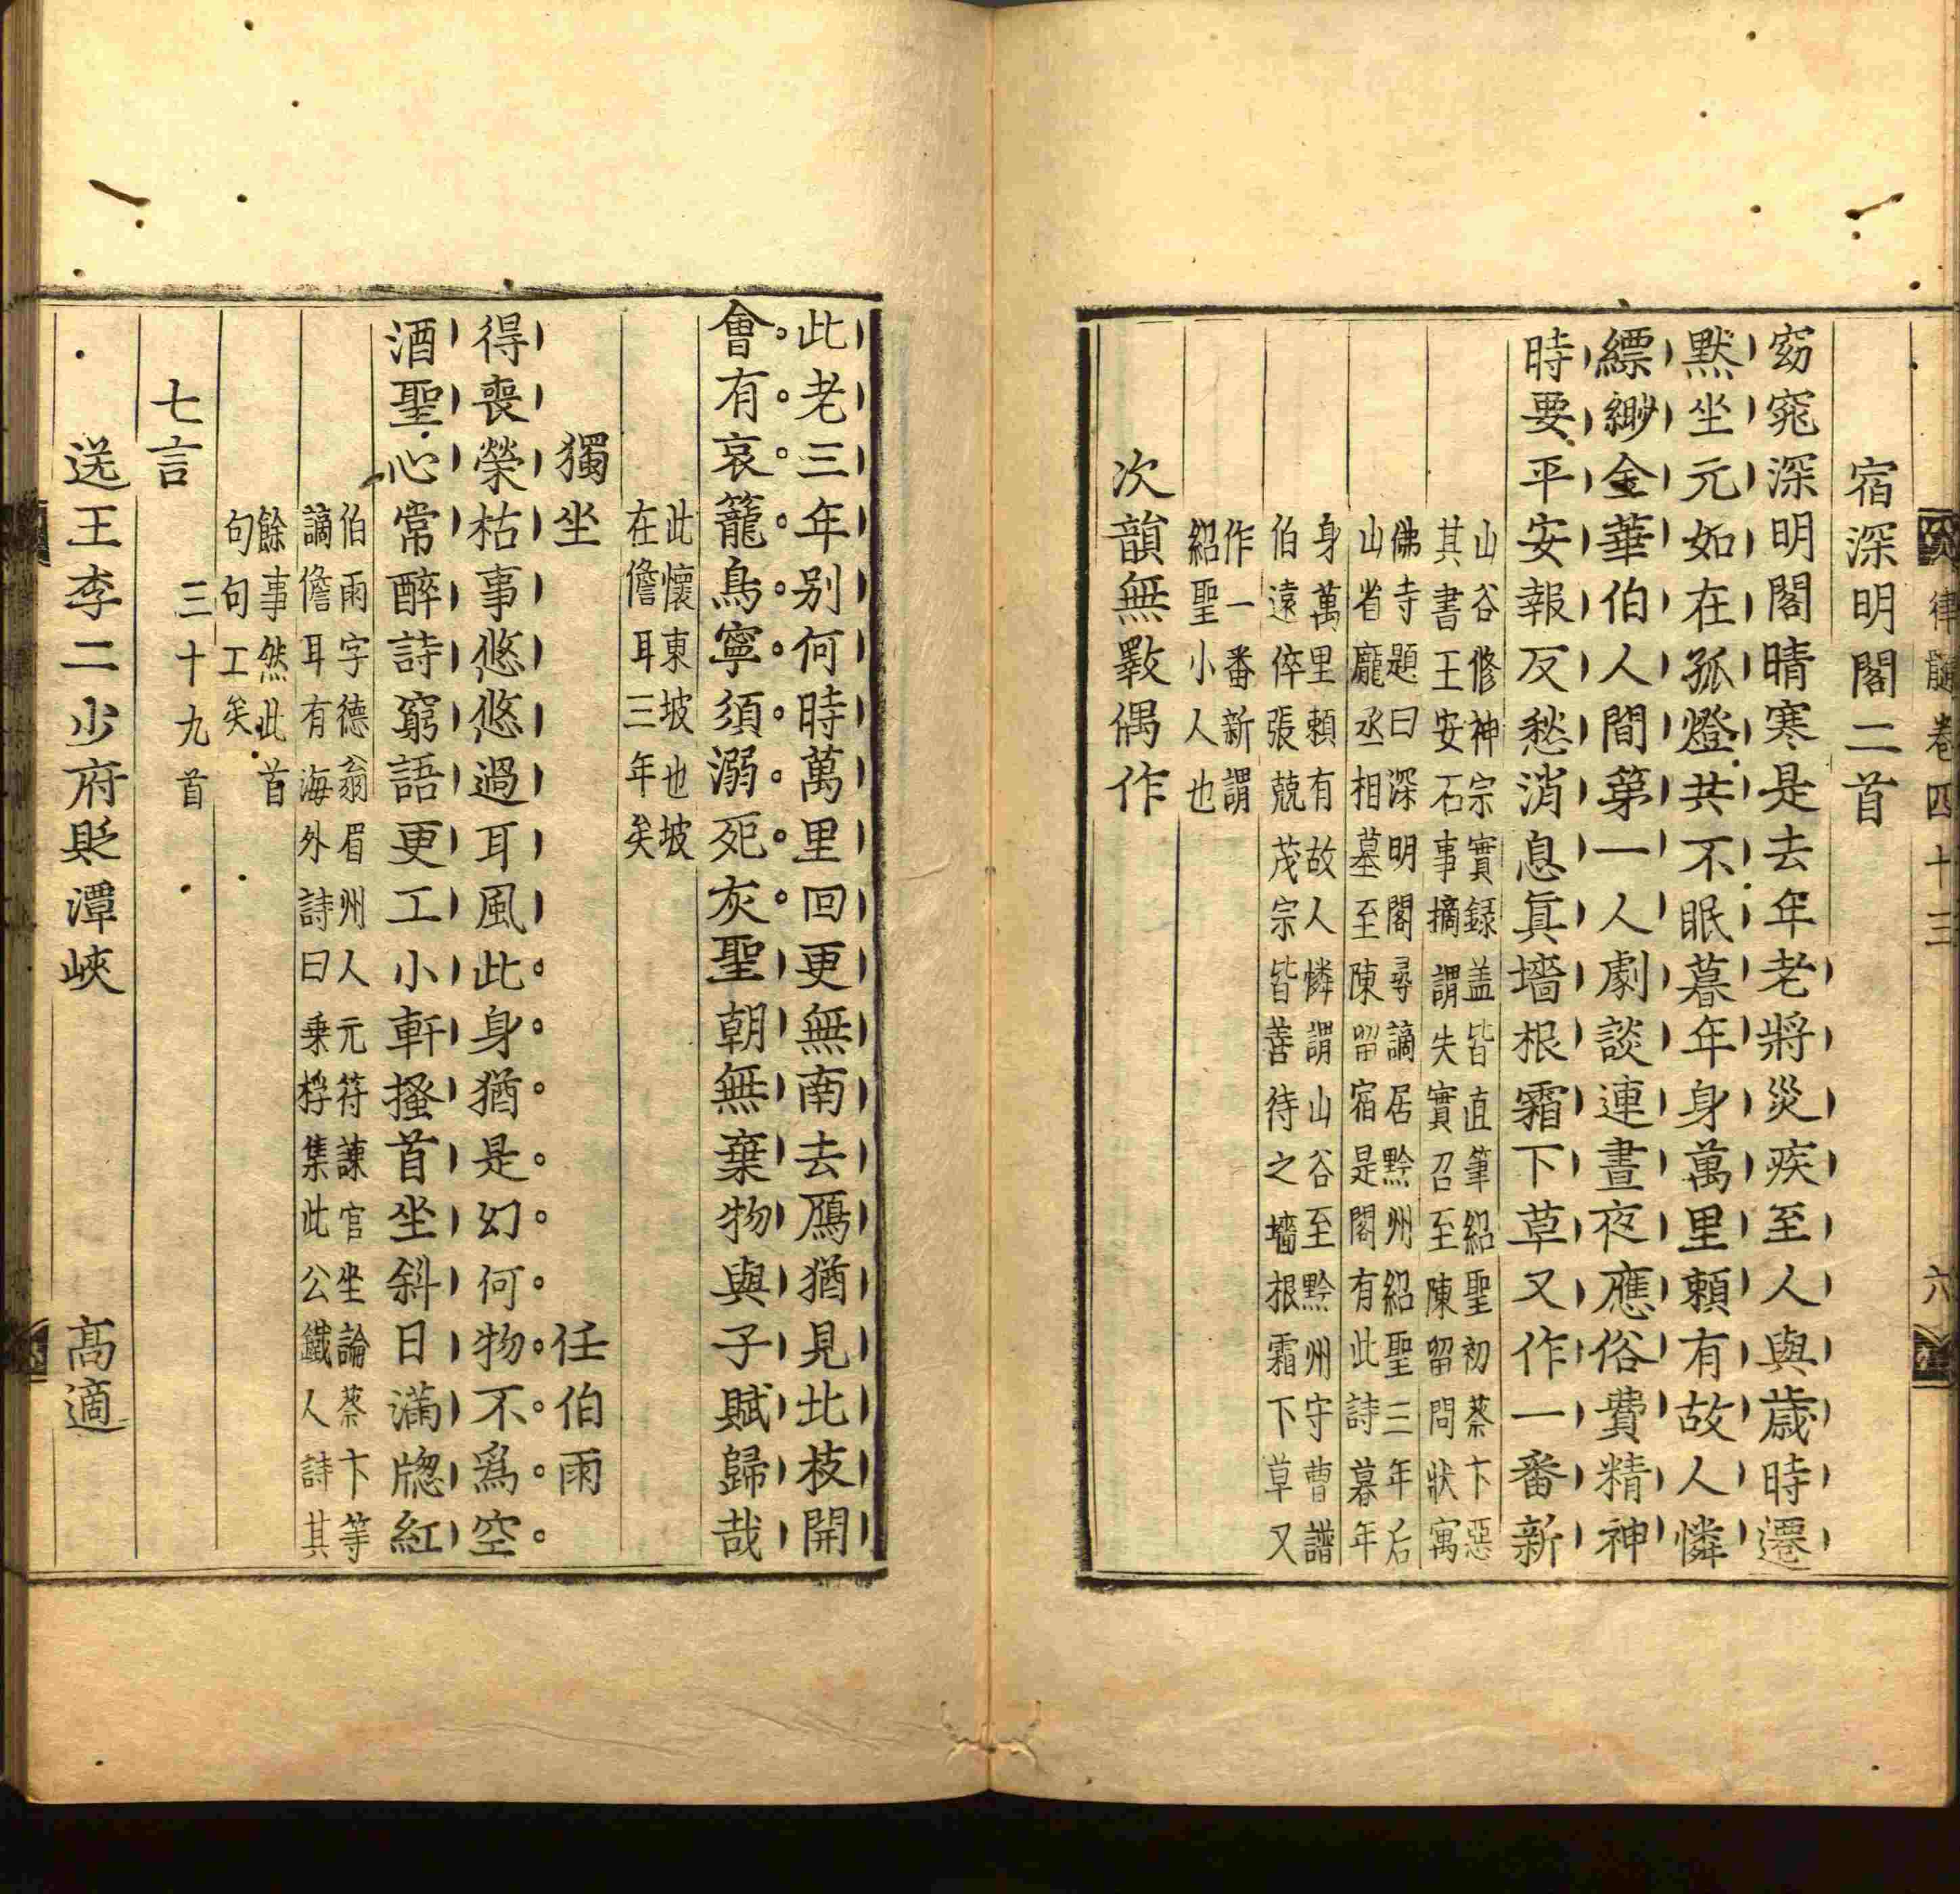 律髓卷四十三
六
宿深明閣二首
窈窕深明閣晴寒是去年老將災疾至人與歲時遷
默坐元如在孤燈共不眠暮年身萬里賴有故人憐
縹緲金華伯人間第一人劇談連晝夜應俗費精神
時要平安報反愁消息真墻根霜下草又作一番新
山谷修神宗實録盖皆直筆紹聖初蔡卞惡
其書王安石事摘謂失實召至陳留問狀寓
佛寺題曰深明閣尋謫居黔州紹聖三年后
山省龐丞相墓至陳留宿是閣有此詩暮年
身萬里賴有故人憐謂山谷至黔州守曹譜
伯遠倅張兢茂宗皆善待之墻根霜下草又
作一番新謂
紹聖小人也
次韻無斁偶作
此老三年别何時萬里回更無南去鴈猶見北枝開
會有哀籠鳥寧須溺死灰聖朝無棄物與子賦歸哉
此懷東坡也坡
在儋耳三年矣
獨坐 任伯雨
得喪榮枯事悠悠過耳風此身猶是幻何物不爲空
酒聖心常醉詩窮語更工小軒搔首坐斜日滿牕紅
伯雨字德翁眉州人元符諫官坐論蔡卞等
謫儋耳有海外詩曰乗桴集此公鐵人詩其
餘事然此首
句句工矣
七言 三十九首
送王李二少府貶潭峽 高適